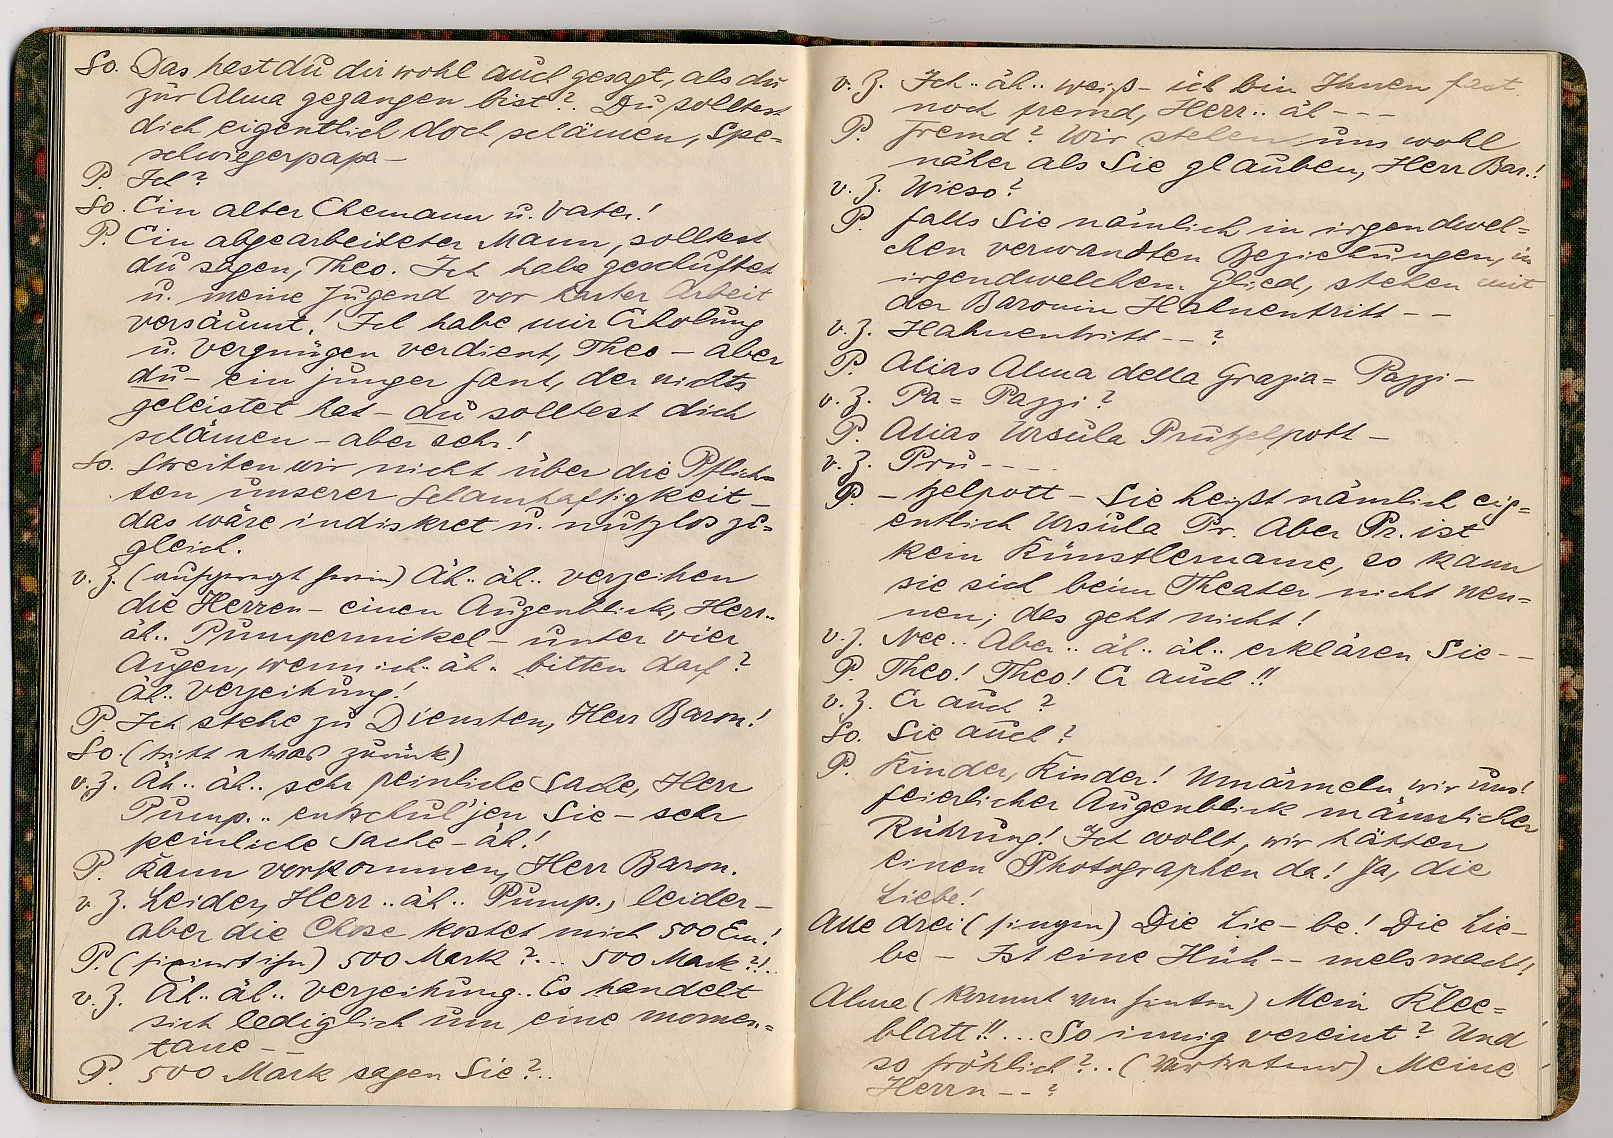 So. Das hast du dir wohl auch gesagt, als du
zur Alma gegangen bist? Du solltest
dich eigentlich doch schämen, Spe=
schwiegerpapa –
P. Ich?
So. Ein alter Ehemann u. Vater!
P. Ein abgearbeiteter Mann, solltest
du sagen, Theo. Ich habe geschuftet
u. meine Jugend vor harter Arbeit
versäumt! Ich habe mir Erholung
u. Vergnügen verdient, Theo – aber
du – ein junger Fant, der nichts
geleistet hat – du solltest dich
schämen – aber sehr!
So. Streiten wir nicht über die Pflich=
ten unserer Schamhaftigkeit –
das wäre indiskret u. nutzlos zu=
gleich.
v. Z. (aufgeregt herein) Äh.. äh.. verzeihen
die Herren – einen Augenblick, Herr..
äh.. Pumpernikel – unter vier
Augen, wenn ich.. äh.. bitten darf?
Äh.. Verzeihung!
P. Ich stehe zu Diensten, Herr Baron!
So. (tritt etwas zurück)
v. Z. Äh.. äh.. sehr peinliche Sache, Herr
Pump... entschul'jen Sie – sehr
peinliche Sache – äh!
P. Kann vorkommen, Herr Baron.
v. Z. Leider, Herr.. äh.. Pump., leider –
aber die Chose kostet mich 500 Em!
P. (fixiert ihn) 500 Mark?... 500 Mark?!..
v. Z. Äh.. äh.. Verzeihung.. Es handelt
sich lediglich um eine momen=
tane –
P. 500 Mark sagen Sie?..
v. Z. Ich.. äh.. weiß – ich bin Ihnen fast
noch fremd, Herr.. äh – – –
P. Fremd? Wir stehen uns wohl
näher als Sie glauben, Herr Bar.!
v. Z. Wieso?
P. Falls Sie nämlich in irgendwel=
chen verwandten Beziehungen, in
irgendwelchem Glied, stehen mit
der Baronin Hahnentritt – –
v. Z. Hahnentritt – – ?
P. Alias Alma della Grazia = Pazzi –
v. Z. Pa = Pazzi?
P. Alias Ursula Prutzelpott –
v. Z. Pru – – – –
P. – tzelpott – Sie heißt nämlich eig=
entlich Ursula Pr. Aber Pr. ist
kein Künstlername, so kann
sie sich beim Theater nicht nen=
nen; das geht nicht!
v. Z. Nee.. Aber.. äh.. äh.. erklären Sie – –
P. Theo! Theo! Er auch!!
v. Z. Er auch?
So. Sie auch?
P. Kinder, Kinder! Umärmeln wir uns!
Feierlicher Augenblick männlicher
Rührung! Ich wollt, wir hätten
einen Photographen da! Ja, die
Liebe!
Alle drei (singen) Die Lie – be! Die Lie –
be – Ist eine Him – – melsmacht!
Alma (kommt von hinten) Mein Klee=
blatt!!... So innig vereint? Und
so fröhlich?.. Meine
Herrn – – ?